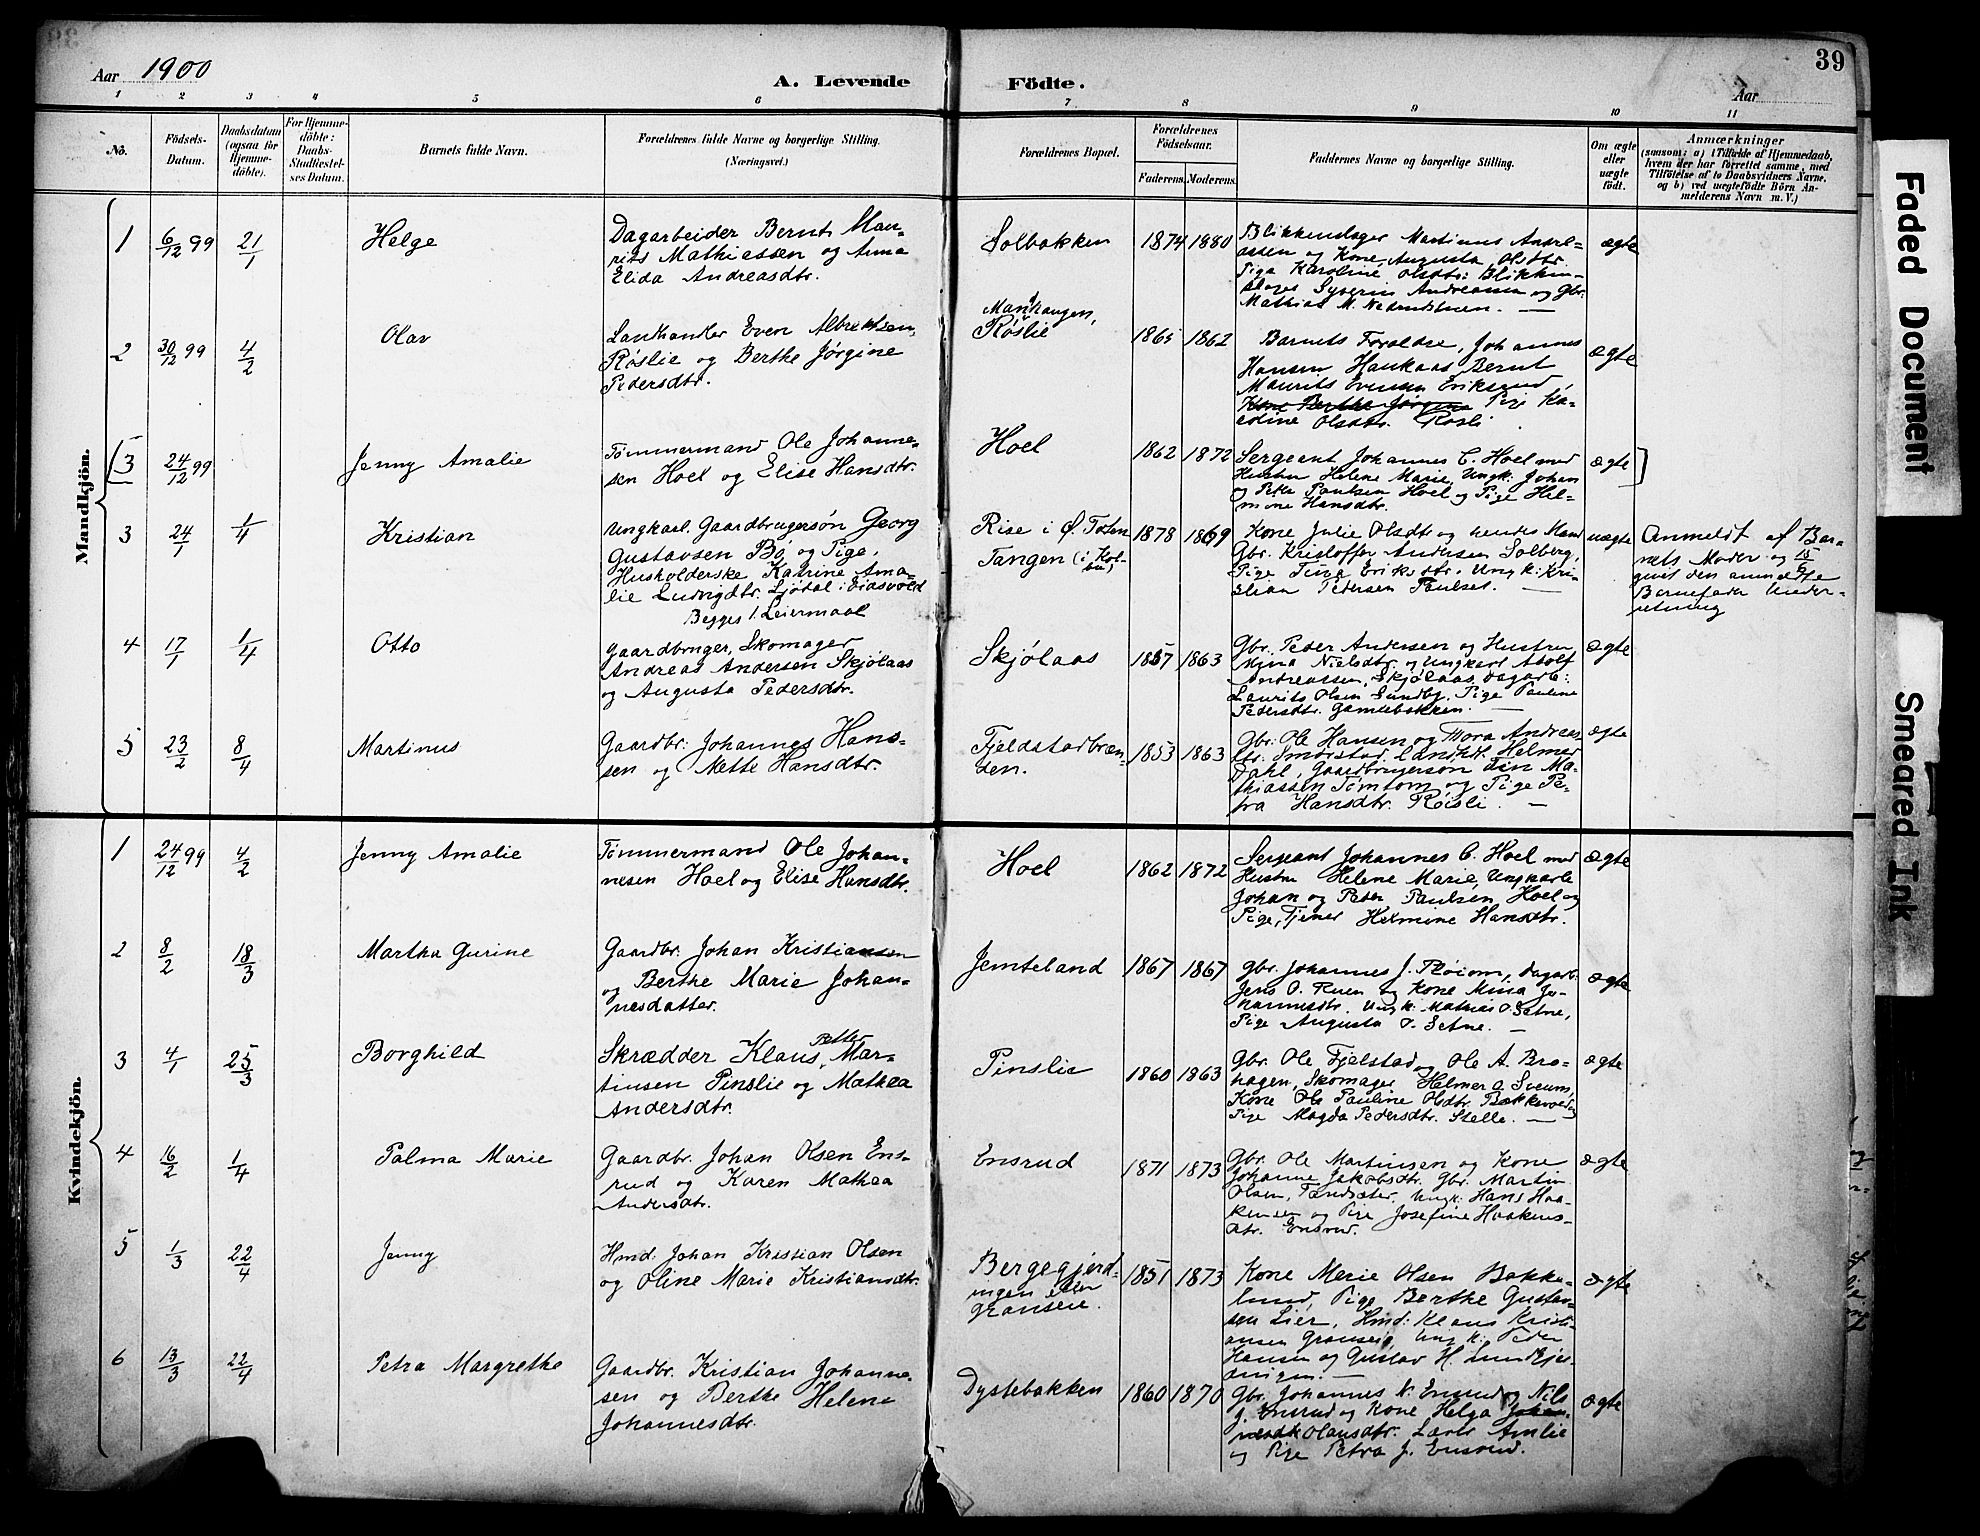 39
Aar 1900
A. Levende
Födte.
Aar
1 2 3 4 5 6 7 8 9 10 11
No.
Födsels-
Datum.
Daabsdatum
(ogsaa for
Hjemme-
döbte).
For Hjemme-
döbte:
Daabs-
Stadfæstel-
ses Datum.
Barnets fulde Navn.
Forældrenes fulde Navne og borgerlige Stilling.
(Næringsvei.)
Forældrenes Bopæl.
Forældrenes
Födselsaar.
Faderens. Moderens.
Faddernes Navne og borgerlige Stilling.
Om ægte
eller
uægte
födt.
Anmærkninger
(saasom: a) i Tilfælde af Hjemmedaab,
hvem der har forrettet samme, med
Tilföielse af to Daabsvidners Navne,
og b) ved uægtefödte Börn An-
melderens Navn m. V.)
Mandkjön.
1
6/12 99
21/1
Helge
Dagarbeider Bernt Mau-
rits Mathiassen og Anna
Elida Andreasdtr.
Solbakken
1874
1880
Blikkenslager Martinus Andre-
assen og Kone Augusta Olsdtr.
Pige Karoline Olsdtr: Blikken-
slager Syverin Andreassen og Gbr.
Mathias M.
ægte
2
30/12 99
4/2
Olav
Landhandler Even Albrektsen
Røslie og Berthe Jørgine
Pedersdtr.
Røslie
1865
1862
Barnets Forældre, Johannes
Hansen Haukaas Bernt
Maurits Evensen Eriksrud,
Kone Berthe Jørgine Pige Ka-
rdine Olsdtr. Røsli
ægte
3
24/12 99
Jenny Amalie
Tømmermand Ole Johanne-
sen Hoel og Elise Hansdtr.
Hoel
1862
1872
Sergeant Johannes C. Hoel med
Hustru Helene Marie, Ungk: Johan
og Peter Paulsen Hoel og Pige Hel-
mine Hansdtr.
ægte
3
24/1
1/4
Kristian
Ungkarl. Gaardbrugersøn Georg
Gustavsen Bø og Pige,
Husholderske Katrine Ama-
lie Ludvigdtr. Sjøtal i Eidsvold
Begges 1. Leiermaal
Rise i Ø. Toten
Tangen (i Kol-
bu)
1878
1869
Kone Julie Olsdtr og hendes Mand
Gbr. Kristoffer Andersen Solberg,
Pige Tina Eriksdtr. Ungk: Kri-
stian Pedersen Paulset.
uægte
Anmeldt af Bar-
nets Moder og 15/6
givet den anmeldte
Barnefader Under-
retning
4
17/1
1/4
Otto
Gaardbruger, Skomager
Andreas Andersen Skjølaas
og Augusta Pedersdtr.
Skjølaas
1857
1863
Gbr. Peder Andersen og Hustru
Nielsdtr. og Ungkarl Adolf
Andreassen, Skjølaas, Dagarb:
Laurits Olsen Sundby, Pige Pauline
Pedersdtr. Gamlebakken.
ægte
5
23/2
8/4
Martinus
Gaardbr: Johannes Hans-
sen og Mette Hansdtr.
Fjeldstadbræn-
den.
1853
1863
Gbr: Ole Hansen og Thora Andreas
dtr. Smørstad. Landhdl. Helmer
Dahl, Gaardbrugersøn Ma-
thiassen Tømtom og Pige Pe-
tra Hansdtr. Røisli.
ægte
Kvindekjön.
1
24/12 99
4/2
Jenny Amalie
Tømmermand Ole Johan-
nesen Hoel og Elise Hansdtr.
Hoel
1862
1872
Sergeant Johannes C. Hoel med
Hustru Helene Marie, Ungkarle
Johan og Peter Paulsen, Hoel og
Pige, Tjener Helmine Hansdtr.
ægte
2
8/2
18/3
Martha Gurine
Gaardbr. Johan Kristiansen
og Berthe Marie Johan-
nesdatter.
Jemteland
1867
1867
Gbr. Johannes J. Røiom, Dagarb.
Jens O. Ruen og Kone Mina Jo-
hannesdtr. Ungk: Mathias O. Setne,
Pige Augusta O. Setne.
ægte
3
4/1
25/3
Borghild
Skrædder Klaus Petter Mar-
tinsen Pinslie og Mathea
Andersdtr.
Pinslie
1860
1863
Gbr. Ole Fjelstad og Ole A. Bra-
hagen, Skomager Helmer O. Sveum,
Kone Ole Pauline Olsdtr. Bakkevold og
Pige Magda Pedersdtr. Stelle.
ægte
4
16/2
1/4
Palma Marie
Gaardbr. Johan Olsen Ens-
rud og Karen Mathea
Andersdtr.
Ensrud
1871
1873
Gbr. Ole Martinsen og Kone
Johanne Jakobsdtr. Gbr. Martin
Olsen, Tandsæter, Ungk: Hans Haa-
kensen og Pige Josefine Haakens-
dtr. Ensrud.
ægte
5
1/3
22/4
Jenny
Hmd: Johan Kristian Olsen
og Oline Marie Kristiansdtr.
Bergegjerd-
ingen eller
Granseie.
1851
1873
Kone Marie Olsen Bakke-
lund, Pige Berthe Gustav-
sen Lier, Hmd: Klaus Kristi-
ansen Granseie, Ungk: Peder
Hansen og Gustav H. Lundgjer-
dingen.
ægte
6
13/3
22/4
Petra Margrethe
Gaardbr. Kristian Johanne-
sen og Berthe Helene
Johannesdtr.
Dystebakken
1860
1870
Gbr. Johannes N. Ensrud og Nils
J. Ensrud og Kone Helga
Olausdtr. Lærer Amlie
og Pige Petra J. Ensrud.
ægte
Faded Document
Smeared Ink